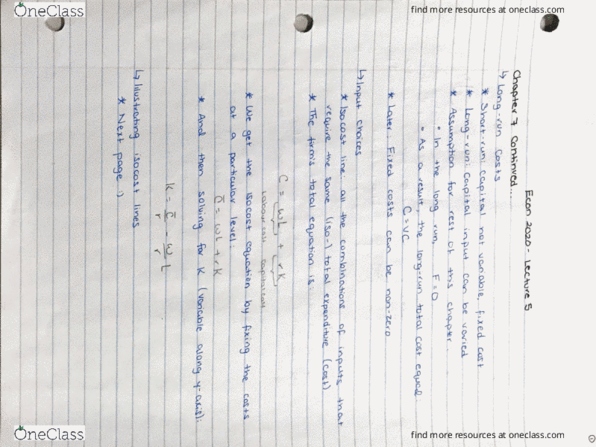 OneClass
find more resources at oneclass.com
Econ 2020 - Lecture 5
Chapter 7 Continued...
↳ Long-run costs
* Short-run: capital not variable, fixed cost
* Long-run: Capital input can be varied
* Assumption for rest of this chapter
• In the long run, F=0
• As a result, the long-run total cost equal:
C = VC
* Later: Fixed costs can be non-zero
↳ Input choices
* Isocost line: all the combinations of inputs that
require the same (iso-) total expenditure (cost)
* The firm's total equation is:
C = wL + rK
Labour cost capital cost
* We get the isocost equation by fixing the costs
at a particular level:
C̅ = wL + rK
* And then solving for K (variable along y-axis):
K = C̅/r - w/r L
↳ Illustrating isocost lines
* Next page :)
OneClass
find more resources at oneclass.com